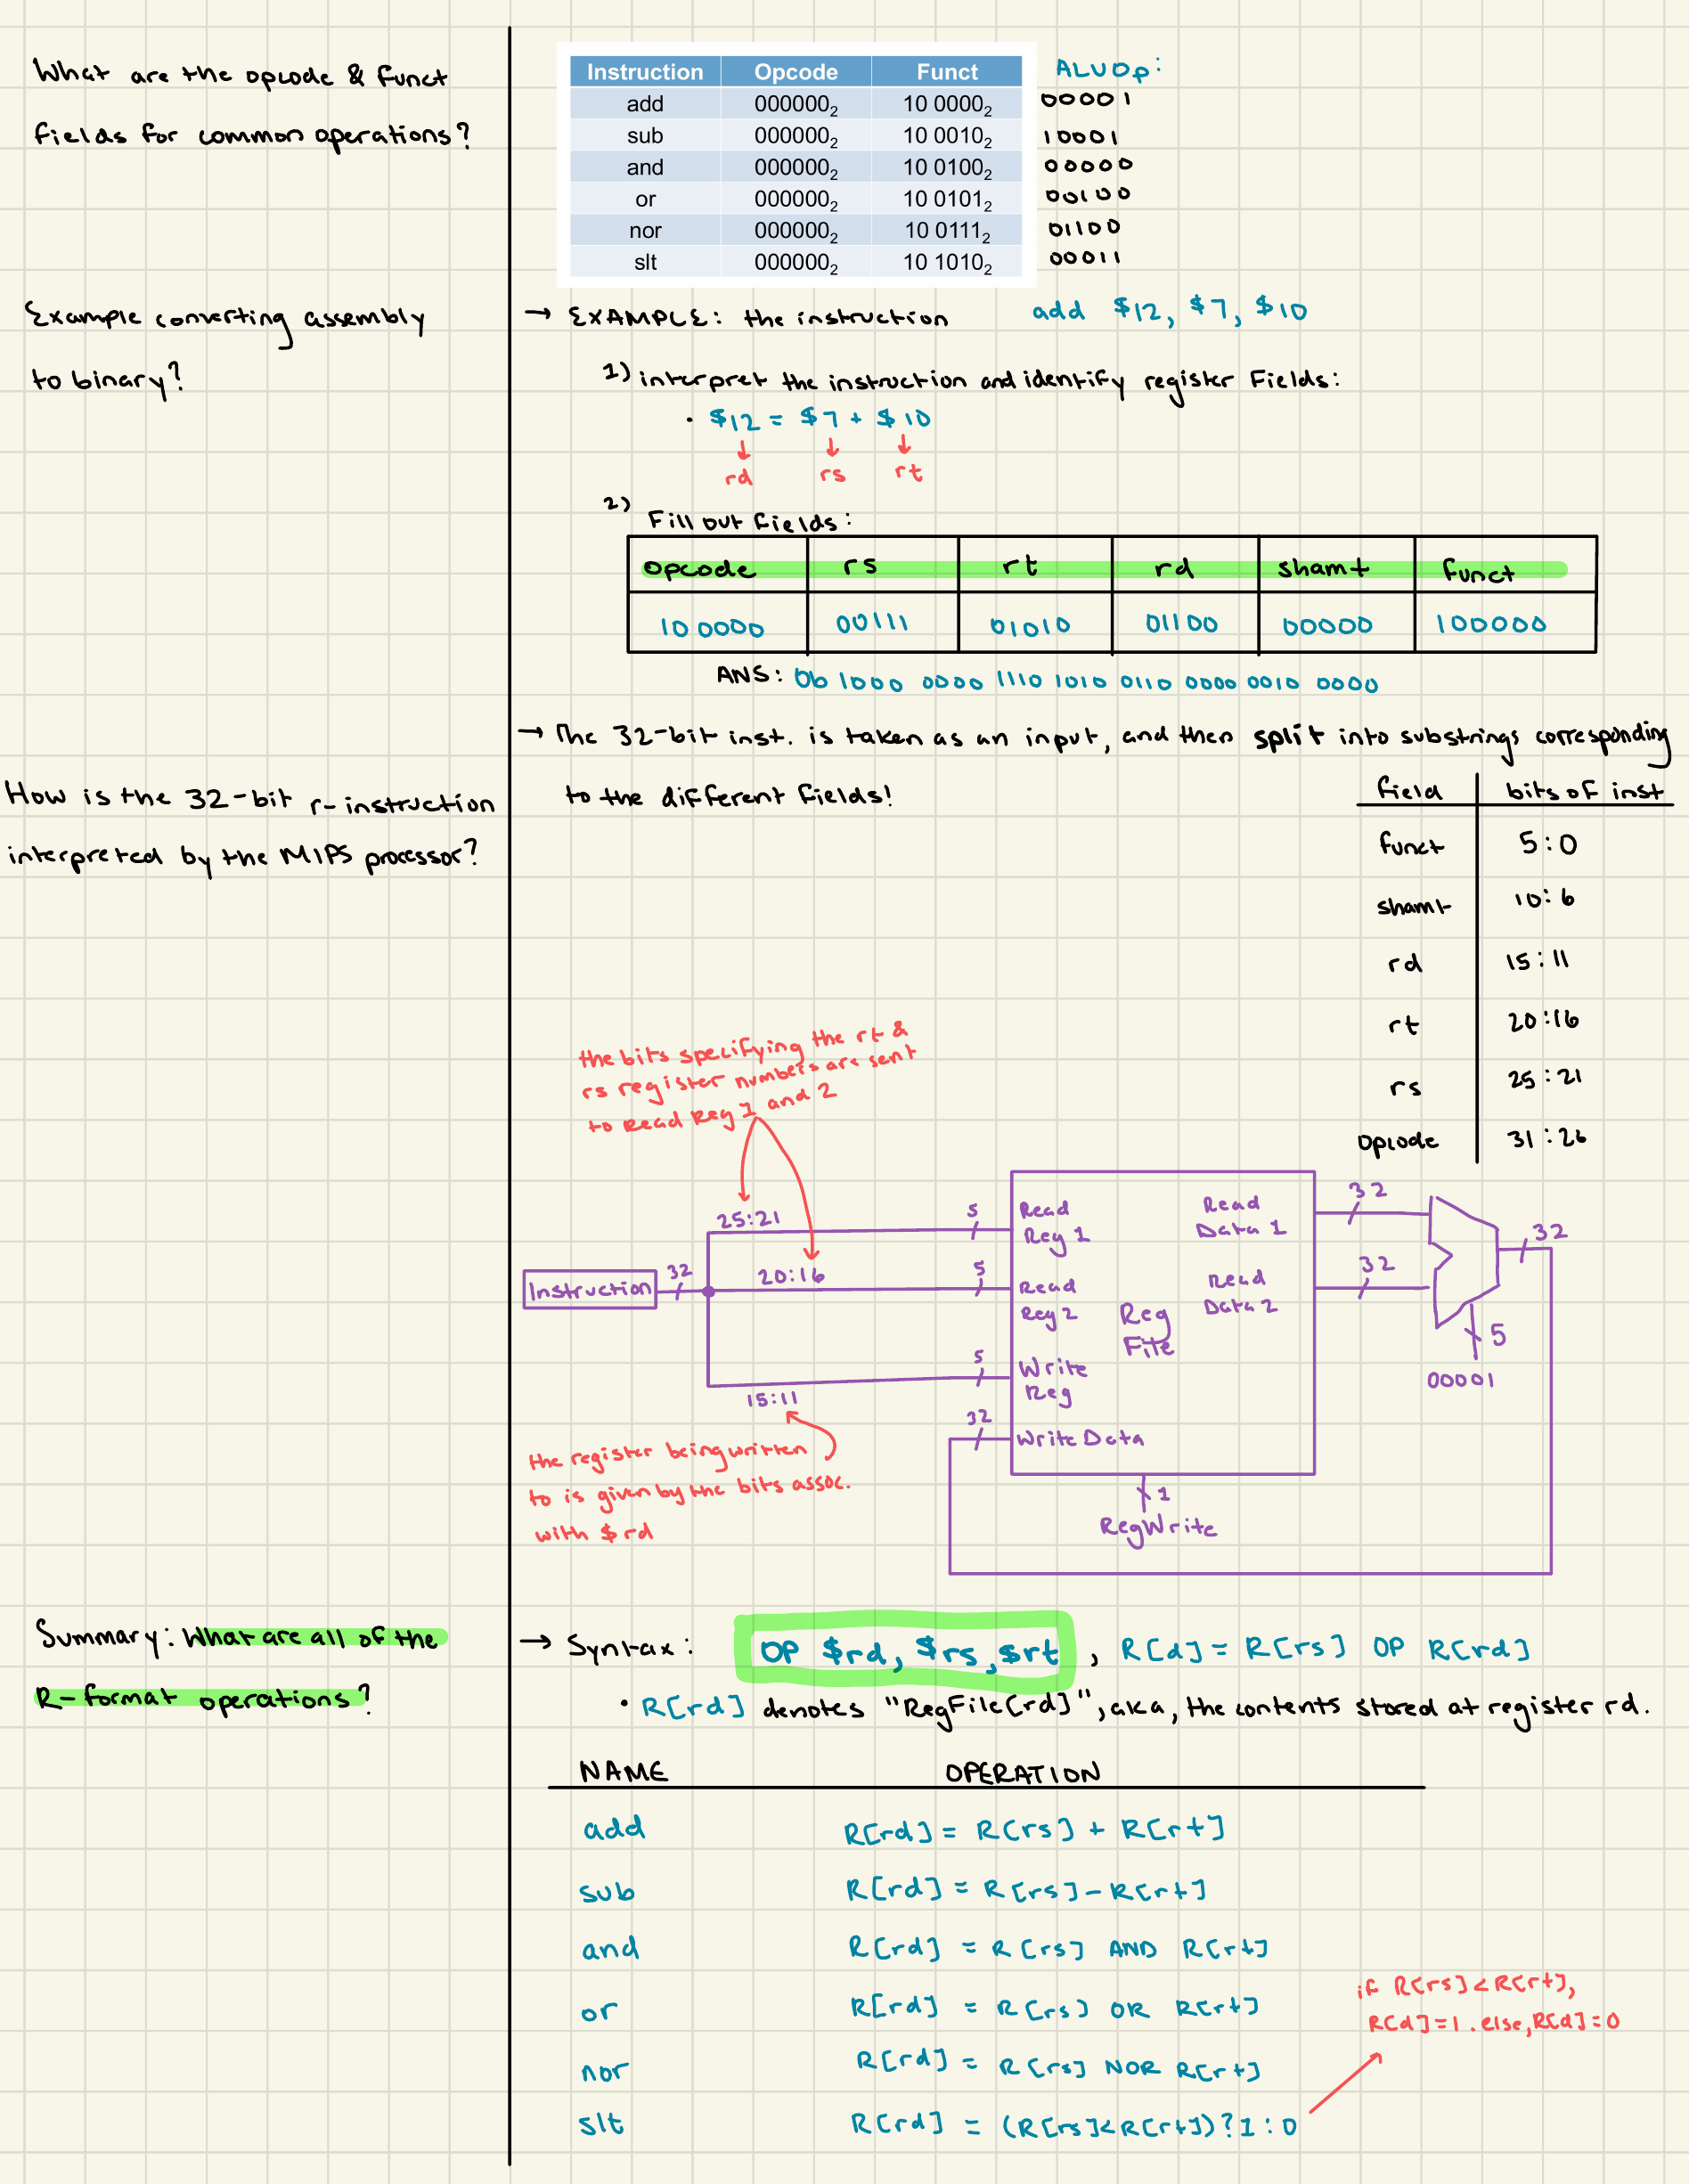 What are the opcode & funct
fields for common operations?
Instruction Opcode Funct ALUOp:
add 000000₂ 10 0000₂ 00001
sub 000000₂ 10 0010₂ 10001
and 000000₂ 10 0100₂ 00000
or 000000₂ 10 0101₂ 00100
nor 000000₂ 10 0111₂ 01100
slt 000000₂ 10 1010₂ 00011
Example converting assembly
to binary?
→ EXAMPLE: the instruction add $12, $7, $10
1) interpret the instruction and identify register fields:
• $12 = $7 + $10
rd rs rt
2) Fill out fields:
opcode rs rt rd shamt funct
100000 00111 01010 01100 00000 100000
ANS: 0b 1000 0000 1110 1010 0110 0000 0010 0000
How is the 32-bit r-instruction
interpreted by the MIPS processor?
→ The 32-bit inst. is taken as an input, and then split into substrings corresponding
to the different fields!
field bits of inst
funct 5:0
shamt 10:6
rd 15:11
rt 20:16
rs 25:21
opcode 31:26
the bits specifying the rt &
rs register numbers are sent
to Read Reg 1 and 2
Instruction
32
25:21
20:16
15:11
5
5
5
32
Read
Reg 1
Read
Reg 2
Write
Reg
Write Data
Read
Data 1
Read
Data 2
Reg
File
1
RegWrite
32
32
32
5
00001
the register being written
to is given by the bits assoc.
with $rd
Summary: What are all of the
R-format operations?
→ Syntax: OP $rd, $rs, $rt , R[d] = R[rs] OP R[rd]
• R[rd] denotes "RegFile[rd]", aka, the contents stored at register rd.
NAME OPERATION
add R[rd] = R[rs] + R[rt]
sub R[rd] = R[rs] - R[rt]
and R[rd] = R[rs] AND R[rt]
or R[rd] = R[rs] OR R[rt]
nor R[rd] = R[rs] NOR R[rt]
slt R[rd] = (R[rs]<R[rt])?1:0
if R[rs]<R[rt],
R[d]=1. else, R[d]=0